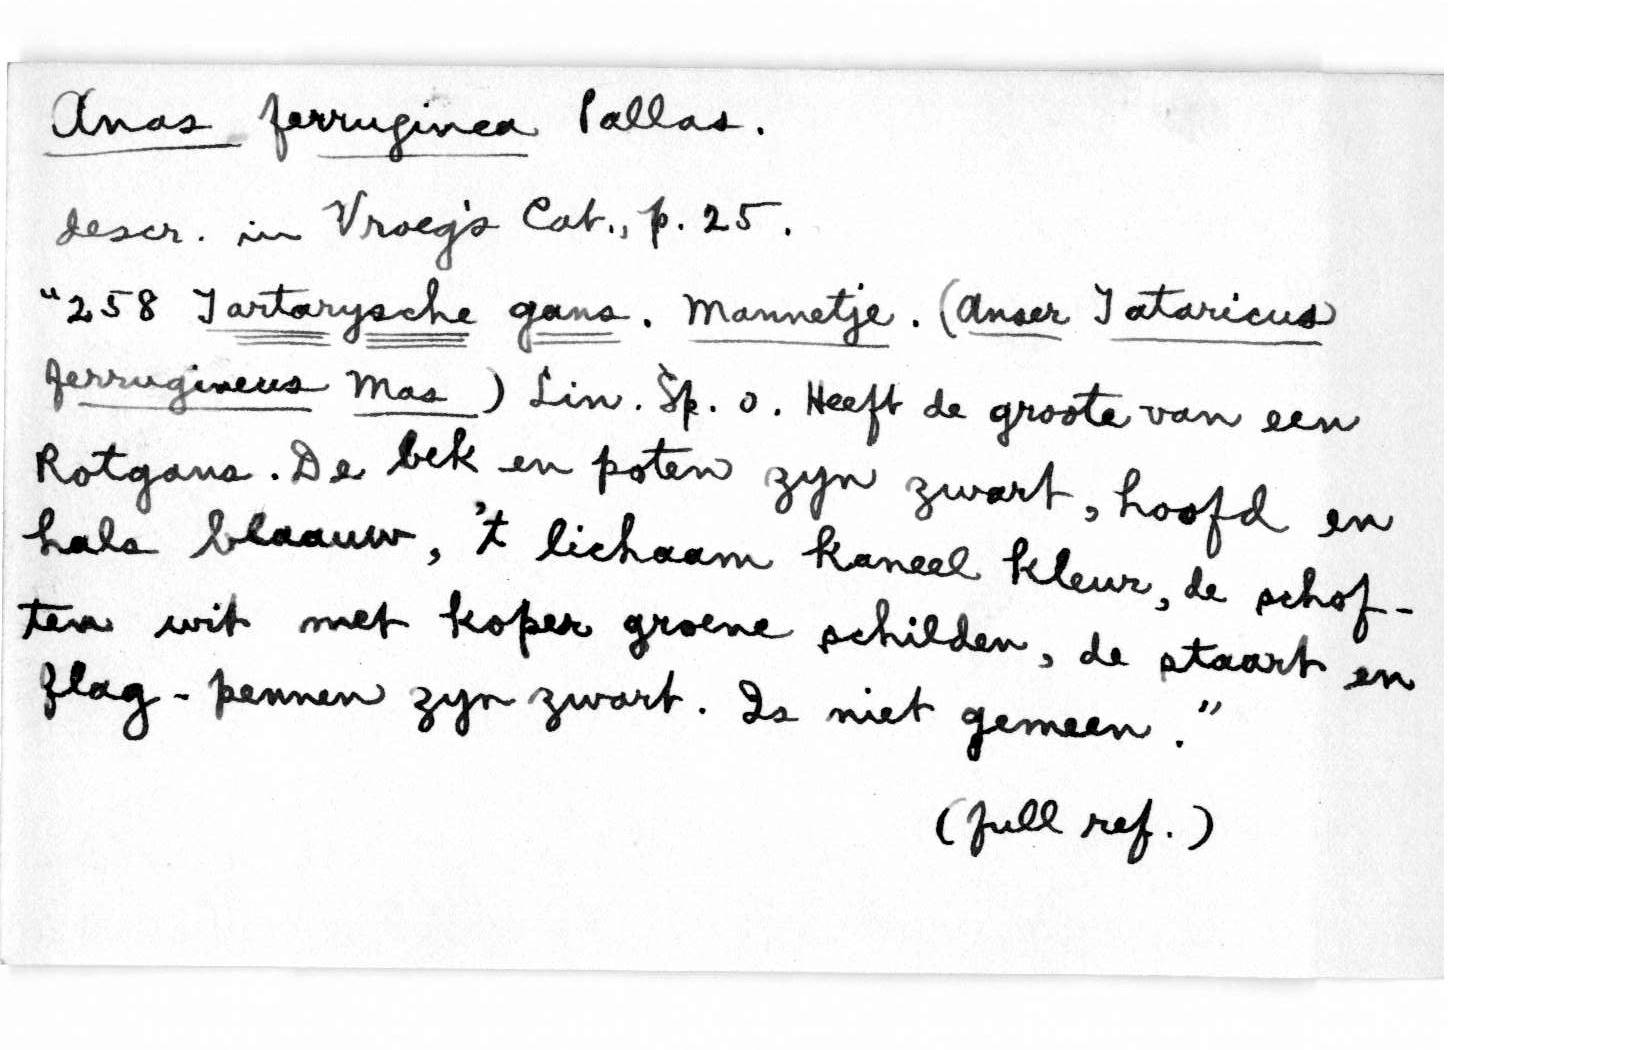 Anas ferruginea Pallas.
descr. in Vroeg's Cat., p. 25.
"258 Tartarysche gans. Mannetje. (Anser Tataricus
ferrugineus Mas) Lin. Sp. 0. Heeft de groote van een
Rotgans. De bek en poten zyn zwart, hoofd en
hals blaauw, 't lichaam kaneel kleur, de schof-
ten wit met koper groene schilden, de staart en
flag-pennen zyn zwart. Is niet gemeen."
(full ref.)